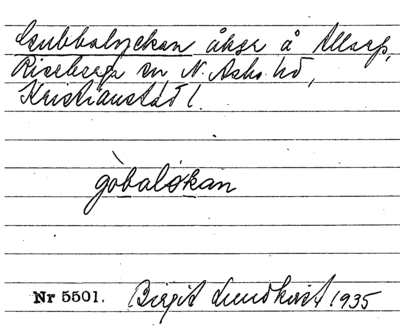 Gubbalyckan åker å Allarp,
Riseberga sn N. Åsbo hd,
Kristianstad l.
gòbaløkan
Nr 5501. Birgit Lundkvist 1935